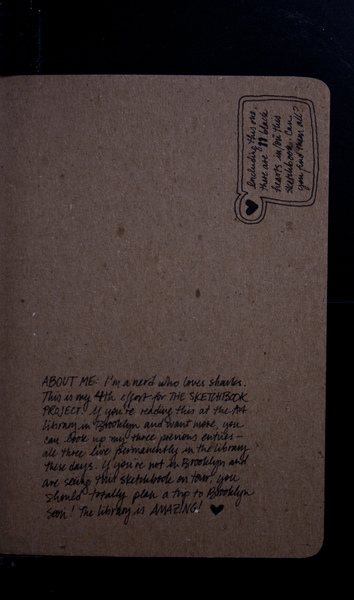 Including this one,
there are 11 black
hearts in this
sketchbook. Can
you find them all?
ABOUT ME: I'm a nerd who loves sharks.
This is my 4th effort for THE SKETCHBOOK
PROJECT. If you're reading this at the Art
Library in Brooklyn and want more, you
can look up my three previous entries –
all three live permanently in the library
these days. If you're not in Brooklyn and
are seeing this sketchbook on tour, you
should totally plan a trip to Brooklyn
soon! The library is AMAZING!